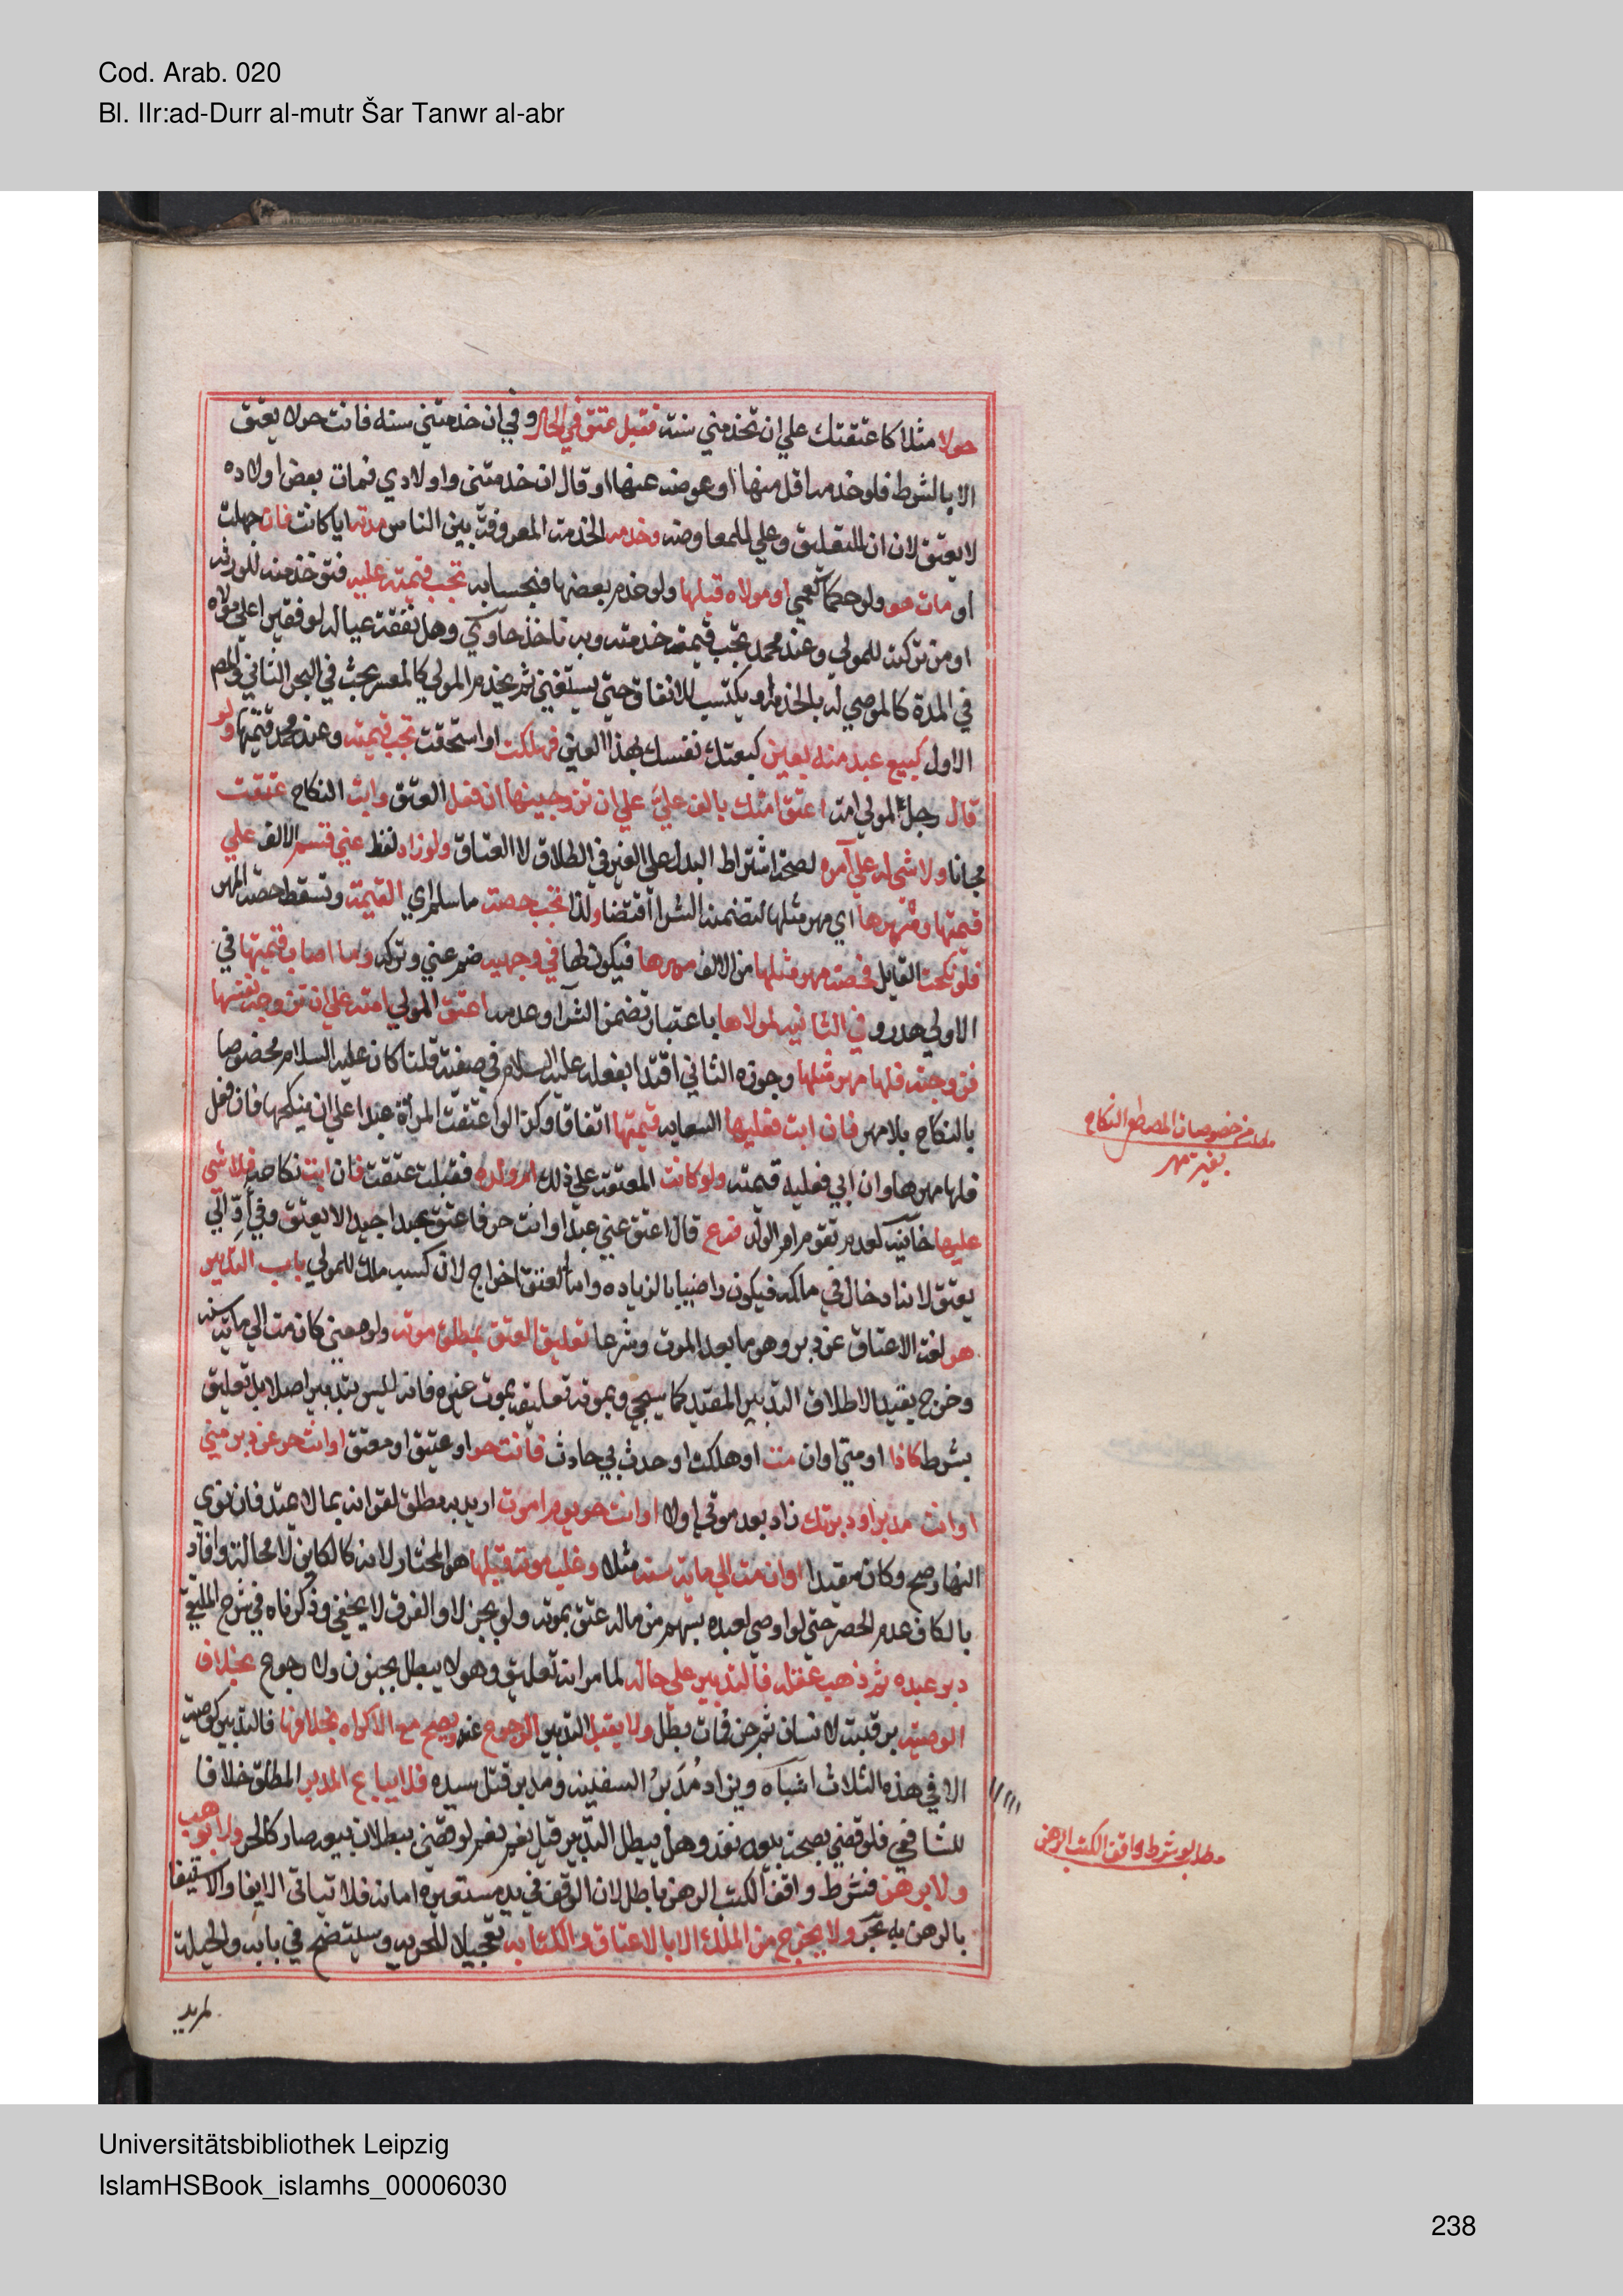 Cod. Arab. 020
Bl. IIr:ad-Durr al-mutr Šar Tanwr al-abr
حولا مثلا كاعتقتك علي ان تخدمني سنة فقبل عتق في الحال وفي ان خدمتني سنه فانت حولا يعتق
الا بالشرط فلو خدمه اقل منها او عوضه عنها او قال ان خدمتني واولادي فمات بعض اولاده
لا يعتق لان ان للتعليق وعلي للمعاوضه وخدمه الخدمة المعروفة بين الناس مدته ايا كانت فان جهلت
او مات هو ولو حكما كعمي او مولاه قبلها ولو خدم بعضها فبحسابه تجب قيمته عليه فتوخذ منه للورثه
او من تركته للمولي وعند محمد تجب قيمة خدمته وبه ناخذ حاوي وهل نفقة عياله لو فقيرا علي مولاه
في المدة كالموصي له بالخدمة او يكتسب للانفاق حتي يستغني ثم يخدم المولي كالمعسر بحث في البحر الثاني والمص
الاول كبيع عبد منه بعين كبعتك نفسك بهذا العين فهلكت او استحقت تجب قيمته وعند محمد قيمتها ولو
قال رجل لمولي امة اعتق امتك بالف علي علي ان تزوجينها ان فعل العتق وابت النكاح عتقت
مجانا ولا شي له علي آمره لصحة اشتراط البدل علي الغير في الطلاق لا العتاق ولو زاد لفظ عني قسم الالف علي
قيمتها ومهرها اي مهر مثلها لتضمنه الشرا اقتضا ولذا تجب حصة ما سلم اي القيمة وتسقط حصة المهر
فلو نكحت القايل فحصة مهر مثلها من الالف مهرها فيكون لها في وجهيه ضم عني وتركه وما اصاب قيمتها في
الاولي هدر و في الثانيه لمولاها باعتبار تضمن الشرآ وعدمه اعتق المولي امته علي ان تزوجه نفسها
فزوجته فلها مهر مثلها وجوزه الثاني اقتدا بفعله عليه السلام في صفية قلنا كان عليه السلام مخصوصا
بالنكاح بلا مهر فان ابت فعليها السعايه قيمتها اتفاقا وكذا لو اعتقت المرأة عبدا علي ان ينكحها فان فعل
فلها مهرها وان ابي فعليه قيمته ولو كانت المعتقة علي ذلك ام ولده فقبلت عتقت فان ابت نكاحه فلا شي
عليها خانيه لعدم تقوم ام الولد فرع قال اعتق عني عبدا وانت حر فاعتق عبدا جيدا لا يعتق وفي أدّ الي
يعتق لانه ادخال في ملكه فيكون راضيا بالزياده واما العتق اخراج لان كسبه ملك للمولي باب التدبير
هو لغة الاعتاق عن دبر وهو ما بعد الموت وشرعا تعليق العتق بمطلق موته ولو معني كان مت الي ماية سنه
وخرج بقيد الاطلاق التدبير المقيد كما سيجي وبموته تعليقه بموت غيره فانه ليس بتدبير اصلا بل تعليق
بشرط كاذا او متي او ان مت او هلكت او حدث بي حادث فانت حر او عتيق او معتق او انت حر عن دبر مني
او انت مدبر او دبرتك زاد بعد موتي او لا او انت حر يوم اموت اريد به مطلق لقرانه بما لا يمتد فان نوي
النهار صح وكان مقيدا او ان مت الي ماية سنه مثلا وغلب موته قبلها هو المختار لانه كالكاين لا محالة وافاد
بالكاف عدم الحصر حتي لو اوصي لعبده بسهم من ماله عتق بموته ولو بجزء لا والفرق لا يخفي وذكرناه في شرح الملتقي
دبر عبده ثم ذهب عقله فالتدبير علي حاله لما مر انه تعليق وهو لا يبطل بجنون ولا رجوع بخلاف
الوصية برقبته لانسان ثم جن فمات بطل ولا يقبل التدبير الرجوع عنه ويصح مع الاكراه بخلافها فالتدبير كوصية
الا في هذه الثلاث اشباه ويزاد مُدَبرُ السفيه ومدبر قتل سيده فلا يباع المدبر المطلق خلافا
للشافعي فلو قضي بصحة بيعه نفذ وهل يبطل التدبير قيل نعم نعم لو قضي ببطلان بيعه صار كالحر ولا يوهب
ولا يرهن فشرط واقف الكتب الرهن باطل لان الوقف في يد مستعيره امانه فلا يتاتي الايفا والاستيفا
بالرهن به بحر ولا يخرج من الملك الا بالاعتاق والكتابه تعجيلا للحريه وسيتضح في بابه والحيلة
لمريد
مطلب من خصوصيات المصطفي النكاح
بغير مهر
مطلب لو شرط واقف الكتب الرهن
Universitätsbibliothek Leipzig
IslamHSBook_islamhs_00006030
238